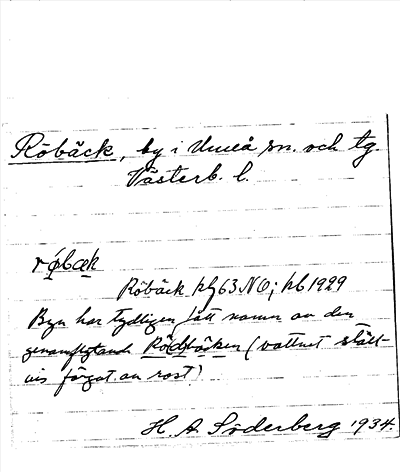 Röbäck, by i Umeå sn. och tg.
Västerb. l.
røbæk
Röbäck 63 NO; 1929
Byn har tydligen fått namn av den
genomflytande Rödbäcken (vattnet ställ-
vis färgat av rost)
H. A. Söderberg 1934.